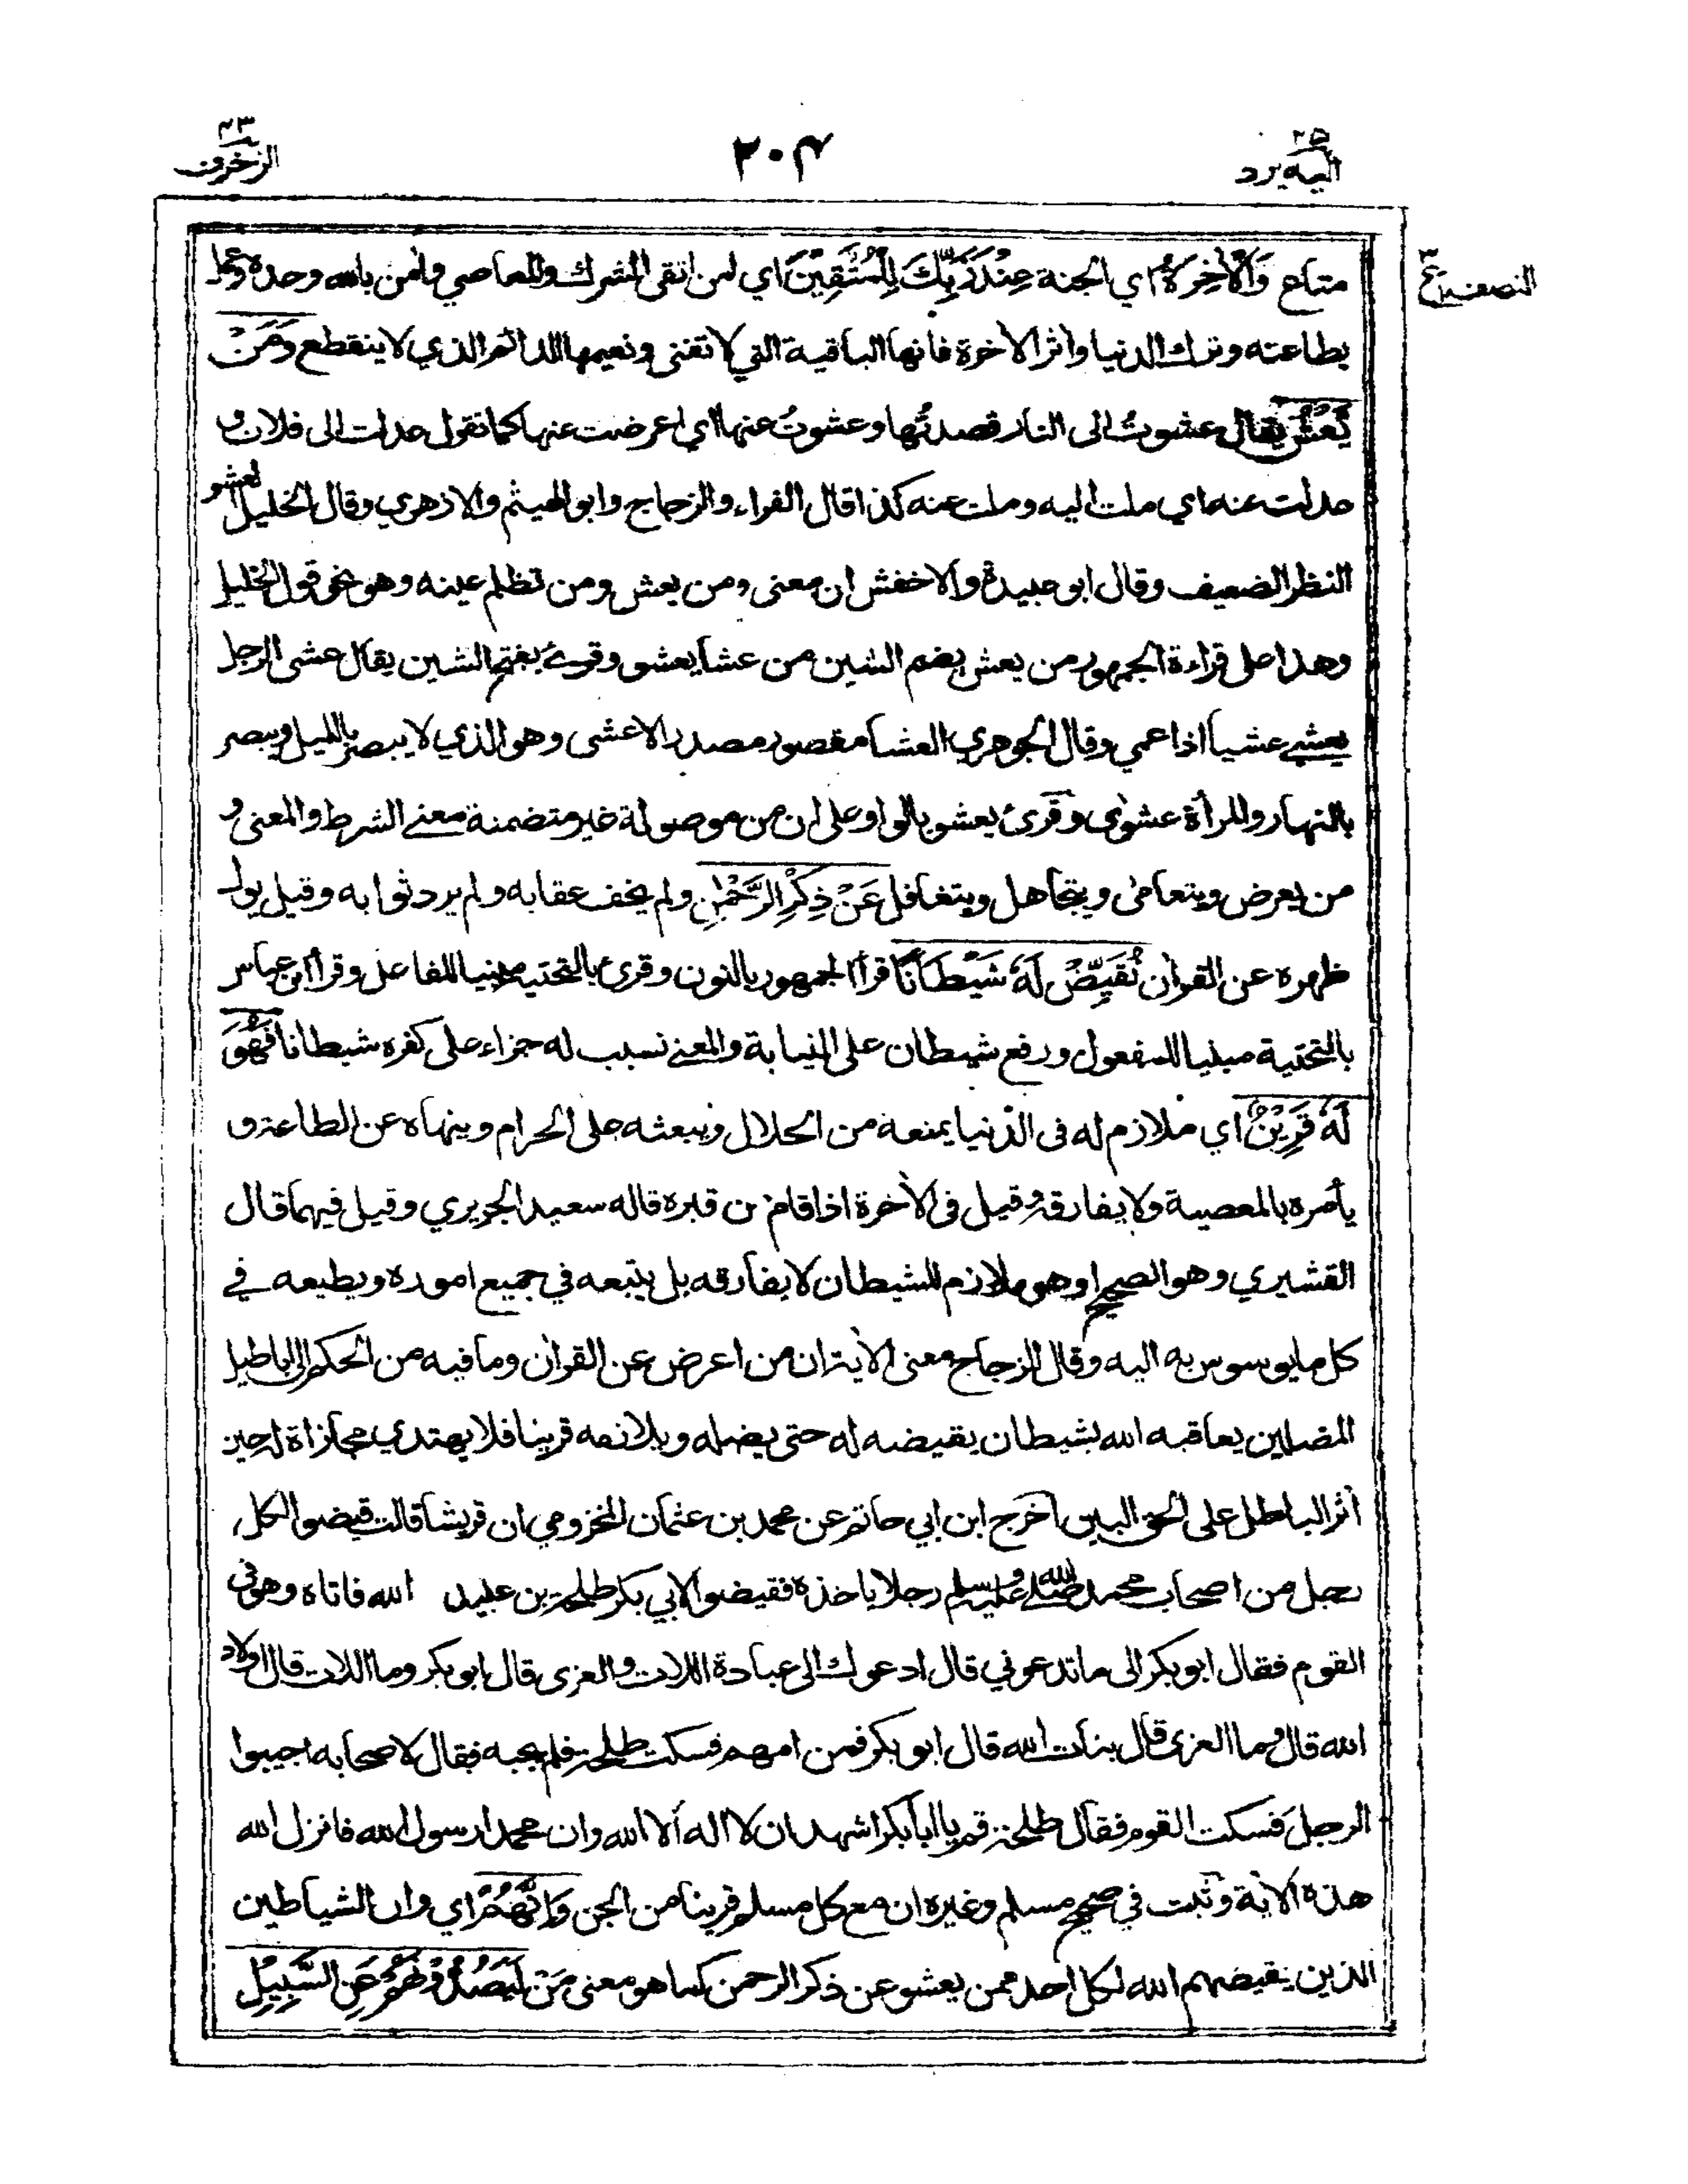 ٢٥
اليه يرد
٢٠٤
٤٣
الزخرف
النصف
متاع وَالْاٰخِرَةُ اي الجنة عِنْدَ رَبِّكَ لِلْمُتَّقِيْنَ اي لمن اتقى الشرك والمعاصي واٰمن بالله وحده وعمل
بطاعته وترك الدنيا واٰثر الاٰخرة فانها الباقية التي لا تفنى ونعيمها الدائم الذي لا ينقطع وَمَنْ
يَّعْشُ يقال عشوتُ الى النار قصدتُها وعشوتُ عنها اي اعرضت عنها كما تقول عدلت الى فلان و
عدلت عنه اي ملت اليه وملت عنه كذا قال الفراء والزجاج وابو الهيثم والازهري وقال الخليل العشو
النظر الضعيف وقال ابو عبيدة والاخفش ان معنى ومن يعش ومن تظلم عينه وهو نحو قول الخليل
وهذا على قراءة الجمهور من يعش بضم الشين من عشا يعشو وقرئ بفتح الشين يقال عشى الرجل
يعشي عشيا اذا عمي وقال الجوهري العشا مقصور مصدر الاعشى وهو الذي لا يبصر بالليل ويبصر
بالنهار والمرأة عشوٰى وقرئ يعشو بالواو على ان من موصولة غير متضمنة معنى الشرط والمعنى و
من يعرض ويتعامىٰ ويتجاهل ويتغافل عَنْ ذِكْرِ الرَّحْمٰنِ ولم يخف عقابه ولم يرد ثوابه وقيل يول
ظهره عن القراٰن نُقَيِّضْ لَهٗ شَيْطَانًا قرأ الجمهور بالنون وقرئ بالتحتية مبنيا للفاعل وقرأ ابن عباس
بالتحتية مبنيا للمفعول ورفع شيطان على النيابة والمعنى نسبب له جزاء على كفره شيطانا فَهُوَ
لَهٗ قَرِيْنٌ اي ملازم له فى الدنيا يمنعه من الحلال ويبعثه على الحرام وينهاه عن الطاعة و
يأمره بالمعصية ولا يفارقه وقيل فى الاٰخرة اذا قام من قبره قاله سعيد الجريري وقيل فيهما قال
القشيري وهو الصحيح او هو ملازم للشيطان لا يفارقه بل يتبعه في جميع اموره ويطيعه في
كل ما يوسوس به اليه وقال الزجاج معنى الاٰية ان من اعرض عن القراٰن وما فيه من الحكم الى اباطيل
المضلين يعاقبه الله بشيطان يقيضه له حتى يضله ويلازمه قرينا فلا يهتدي مجازاة له حين
اٰثر الباطل على الحق البين اخرج ابن ابي حاتم عن محمد بن عثمان المخزومي ان قريشا قالت قيضوا لكل
رجل من اصحاب محمد صلى الله عليه وسلم رجلا ياخذه فقيضوا لابي بكر طلحة بن عبيد الله فاتاه وهو فى
القوم فقال ابو بكر الى ما تدعوني قال ادعوك الى عبادة اللات والعزى قال ابو بكر وما اللات قال اولاد
الله قال وما العزى قال بنات الله قال ابو بكر فمن امهم فسكت طلحة فلم يجبه فقال لاصحابه اجيبوا
الرجل فسكت القوم فقال طلحة قم يا ابا بكر اشهد ان لا اله الا الله وان محمدا رسول الله فانزل الله
هذه الاٰية وثبت في صحيح مسلم وغيره ان مع كل مسلم قرينا من الجن وَاِنَّهُمْ اي وان الشياطين
الذين يقيضهم الله لكل احد ممن يعشو عن ذكر الرحمن كما هو معنى مَنْ لَيَصُدُّوْنَهُمْ عَنِ السَّبِيْلِ